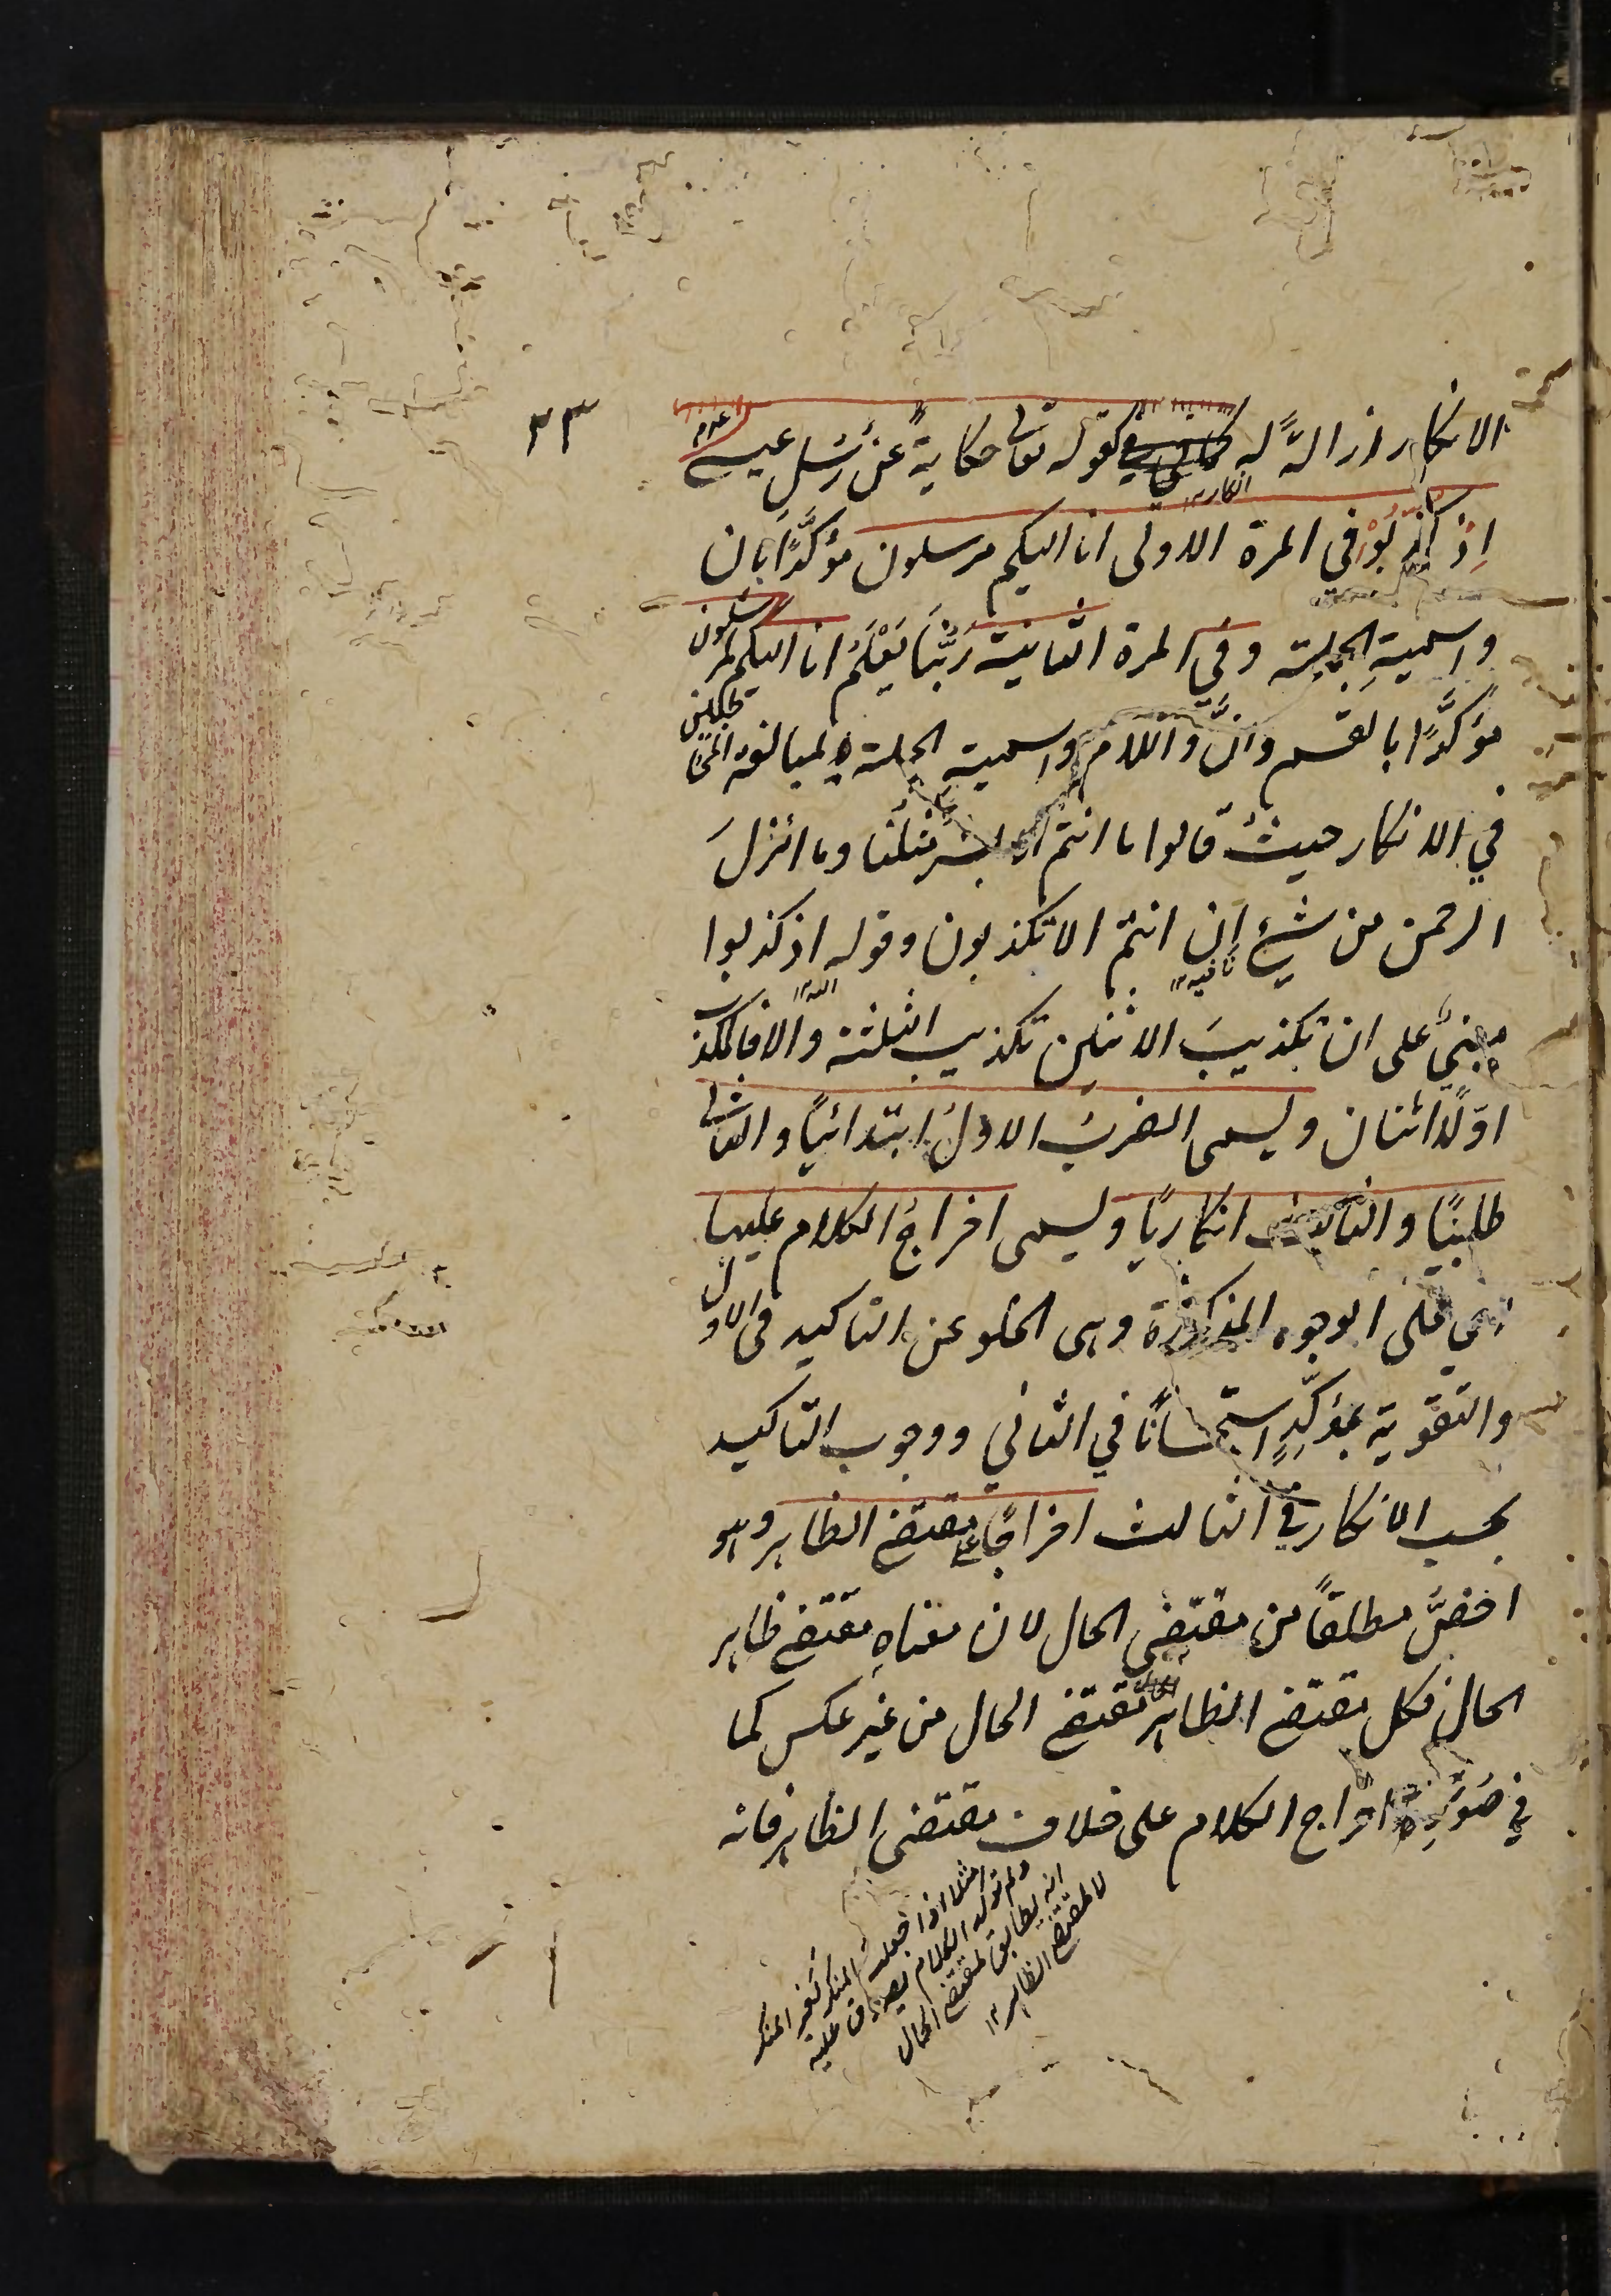 ٣٣
الانكار ازالةً له كقوله تعا حكايةً عن رُسُلِ عيسى ع م
اِذ كُذِّبُوْا في المرة الاولى انا اليكم مرسلون مؤكَّدًا بان
انكار ١٢
واسميةِ الجملة وفي المرة الثانية رَبُّنَا يَعْلَمُ انا اليكم لمرسلون
مؤكَّدًا بالقسم وانَّ واللام واسمية الجملة لمبالغة المخاطبين
في الانكار حيثُ قالوا ما انتم الا بشرٌ مثلُنا وما انزلَ
الرحمن من شيْءٍ اِن انتم الا تكذبون وقوله اذ كذبوا
نافيه ١٢
مبنيٌّ على ان تكذيبَ الاثنين تكذيب الثلثة والا فالمكذب
اوّلًا اثنان ويسمى الضربُ الاولُ ابتدائيًا والثانى
طلبيًا والثالث انكاريًا ويسمى اخراجُ الكلام عليها
اى على الوجوه المذكورة وهى الخلو عن التاكيد فى الاول
والتقوية بمؤكِّدٍ استحسانًا في الثاني ووجوب التاكيد
بحسب الانكار في الثالث اخراجًا على مقتضى الظاهر وهو
اخصُّ مطلقًا من مقتضى الحال لان معناه مقتضى ظاهر
الحال فكل مقتضى الظاهر مقتضى الحال من غير عكس كما
في صُوَرِ اخراج الكلام على خلاف مقتضى الظاهر فانه
مثلا اذا جعلت المنكر كغير المنكر
ولم تؤكد الكلام يصدق عليه
انه يطابق لمقتضى الحال
لا لمقتضى الظاهر ١٢